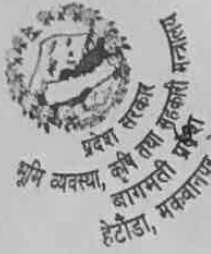 प्रदेश सरकार
भूमि व्यवस्था, कृषि तथा सहकारी मन्त्रालय
बागमती प्रदेश
हेटौंडा, मकवानपुर